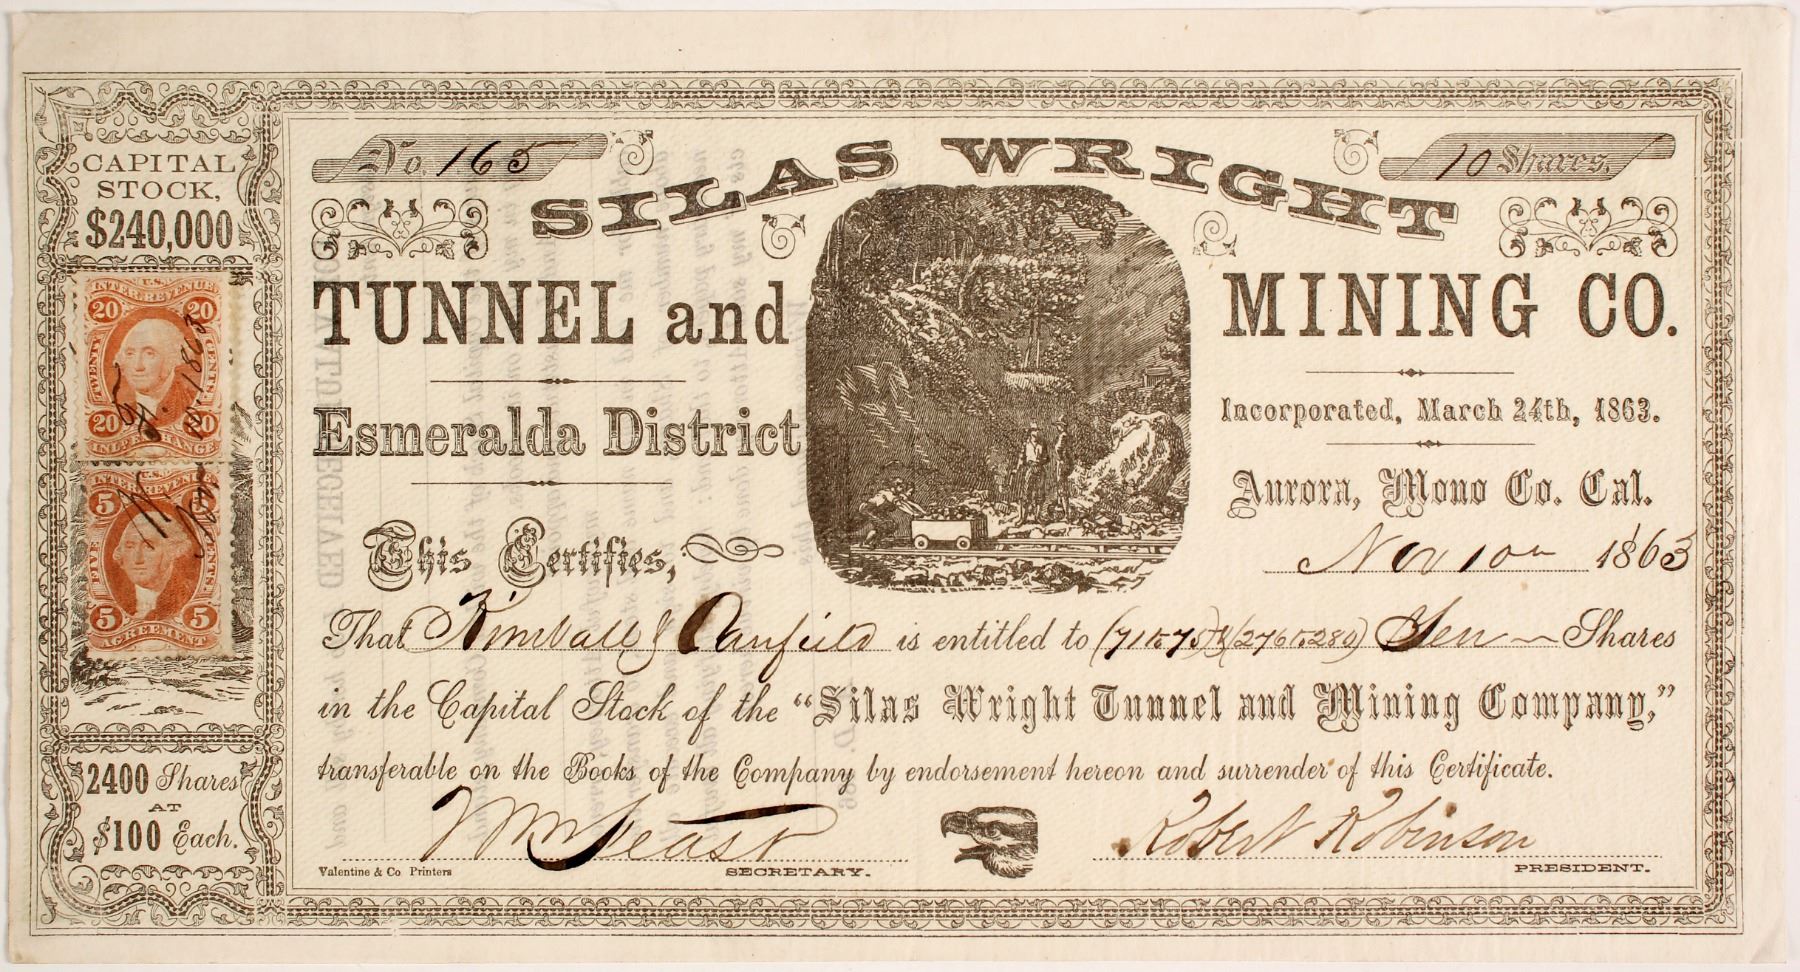 No. 165
10 Shares.
SILAS WRIGHT
TUNNEL and MINING CO.
Esmeralda District
Incorporated, March 24th, 1863.
Aurora, Mono Co. Cal.
Nov 10th 1863
This Certifies,
That Kimball & Canfield is entitled to (71 to 75) & (276 to 280) Ten Shares
in the Capital Stock of the "Silas Wright Tunnel and Mining Company,"
transferable on the Books of the Company by endorsement hereon and surrender of this Certificate.
Robert Robinson
Valentine & Co Printers
SECRETARY.
PRESIDENT.
CAPITAL
STOCK,
$240,000
U.S.
INTER. REVENUE
20 20
TWENTY CENTS
20 20
INLD EXCHANGE
INTER. REVENUE
5
FIVE CENTS
5 5
AGREEMENT
2400 Shares
AT
$100 Each.